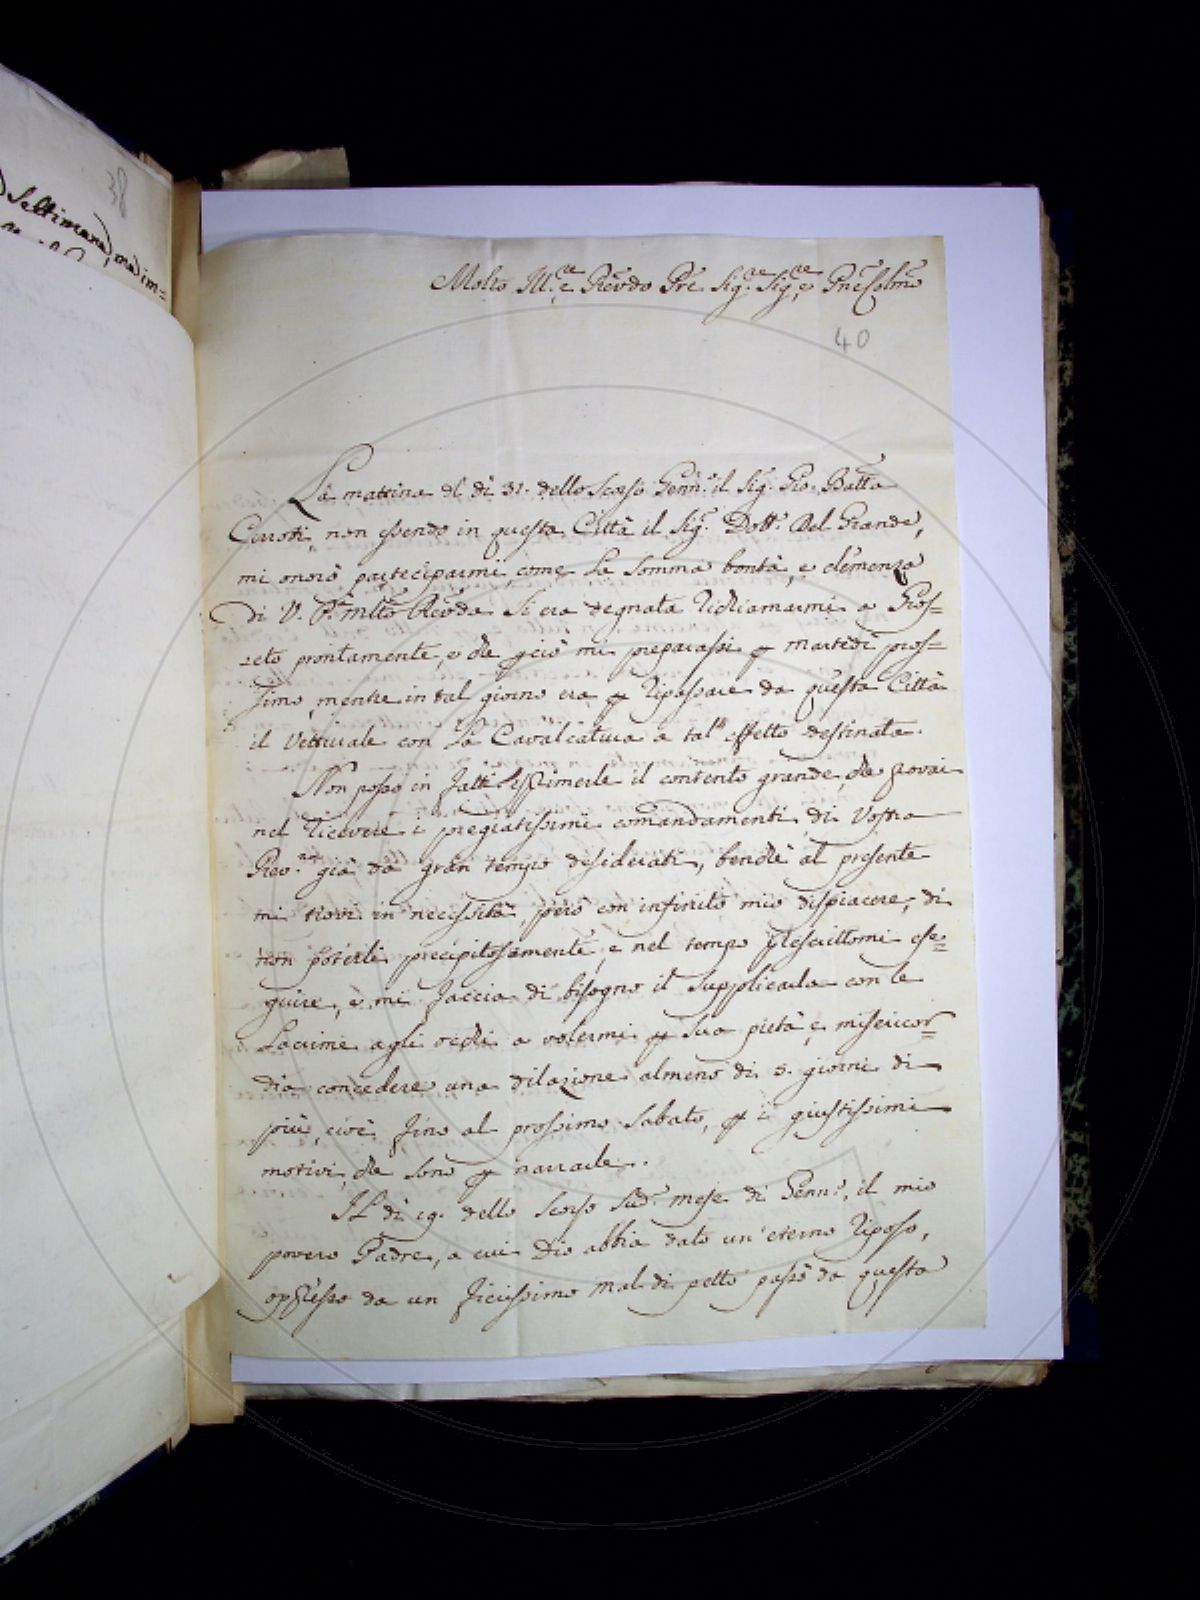 38
Settimana, ma im=
Molto Ill.re e Revdo Pre Sig.re Sig.re e Pne Colmo
40
La mattina del dì 31. dello Scorso Genn.o il Sig. Gio. Batta
Ciuoti, non essendo in questa Città il Sig. Dott. Del Grande,
mi onorò parteciparmi, come la Somma bontà, e clemenza
di V. P. mlto Revda Si era degnata richiamarmi a Gros=
seto prontamente, e che p ciò mi preparassi p martedì pros=
simo, mentre in tal giorno era p ripassare da questa Città
il Vetturale con la Cavalcatura a tal effetto destinata.
Non posso in fatti esprimerle il contento grande, che provai
nel ricevere i pregiatissimi comandamenti di Vostra
Rev.za già da gran tempo desiderati, benchè al presente
mi trovi in necessità, però con infinito mio dispiacere, di
non poterli precipitosamente, e nel tempo prescrittomi ese=
guire, e mi faccia di bisogno il supplicarla con le
Lacrime agli occhi a volermi p sua pietà e misericor=
dia concedere una dilazione almeno di 5. giorni di
più, cioè fino al prossimo Sabato, p i giustissimi
motivi, che sono p narrarle.
Il dì 19. dello Scorso Sud.o mese di Genn.o, il mio
povero Padre, a cui Dio abbia dato un'eterno riposo,
oppresso da un fierissimo mal di petto passò da questa